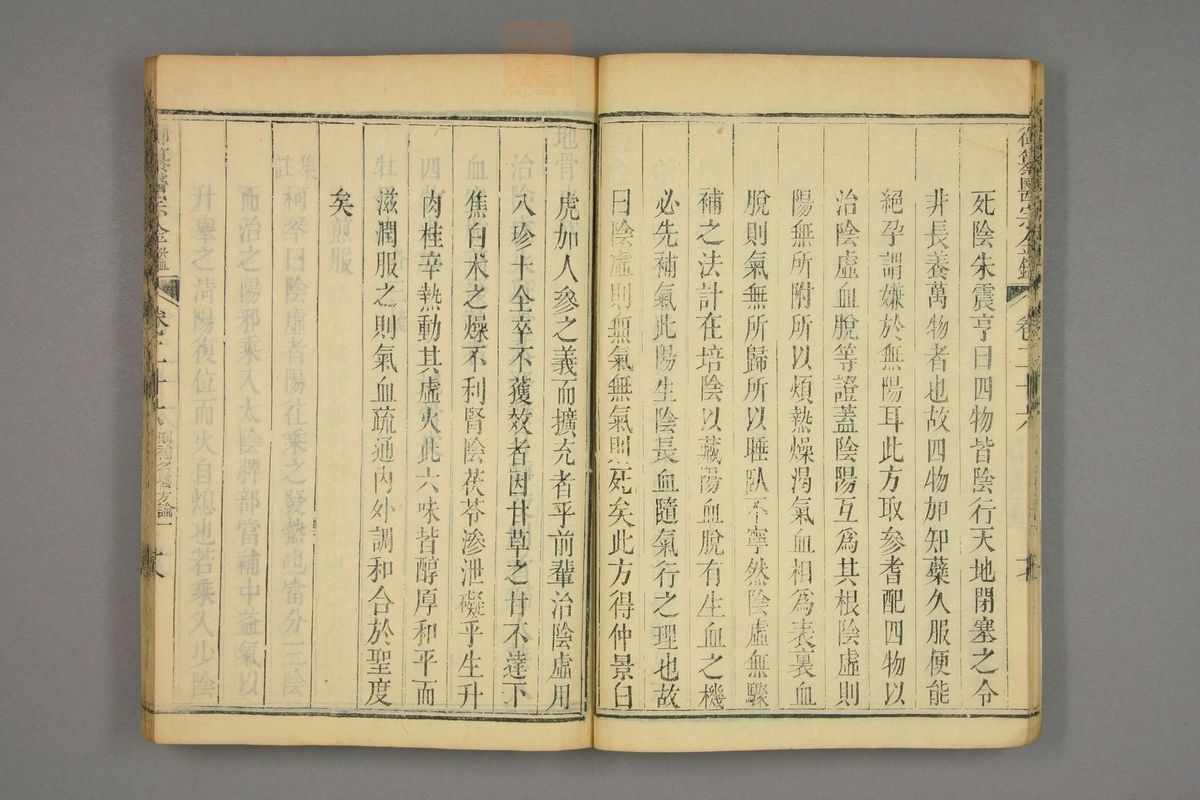 御纂醫宗金鑑 卷二十六
死陰朱震亨曰四物皆陰行天地閉塞之令
非長養萬物者也故四物加知蘗久服便能
絕孕謂嫌於無陽耳此方取參耆配四物以
治陰虛血脫等證蓋陰陽互爲其根陰虛則
陽無所附所以煩熱燥渴氣血相爲表裏血
脫則氣無所歸所以睡臥不寧然陰虛無驟
補之法計在培陰以藏陽血脫有生血之機
必先補氣此陽生陰長血隨氣行之理也故
曰陰虛則無氣無氣則死矣此方得仲景白
虎加人參之義而擴充者乎前輩治陰虛用
八珍十全卒不獲效者因甘草之甘不達下
焦白术之燥不利腎陰茯苓滲泄礙乎生升
肉桂辛熱動其虛火此六味皆醇厚和平而
滋潤服之則氣血疏通內外調和合於聖度
矣
集註
柯琴曰陰虛者陽往乘之發熱也當分三陰
而治之陽邪乘入太陰脾部當補中益氣以
升舉之清陽復位而火自熄也若乘入少陰
御纂醫宗金鑑 卷二十六 刪補名醫方論一